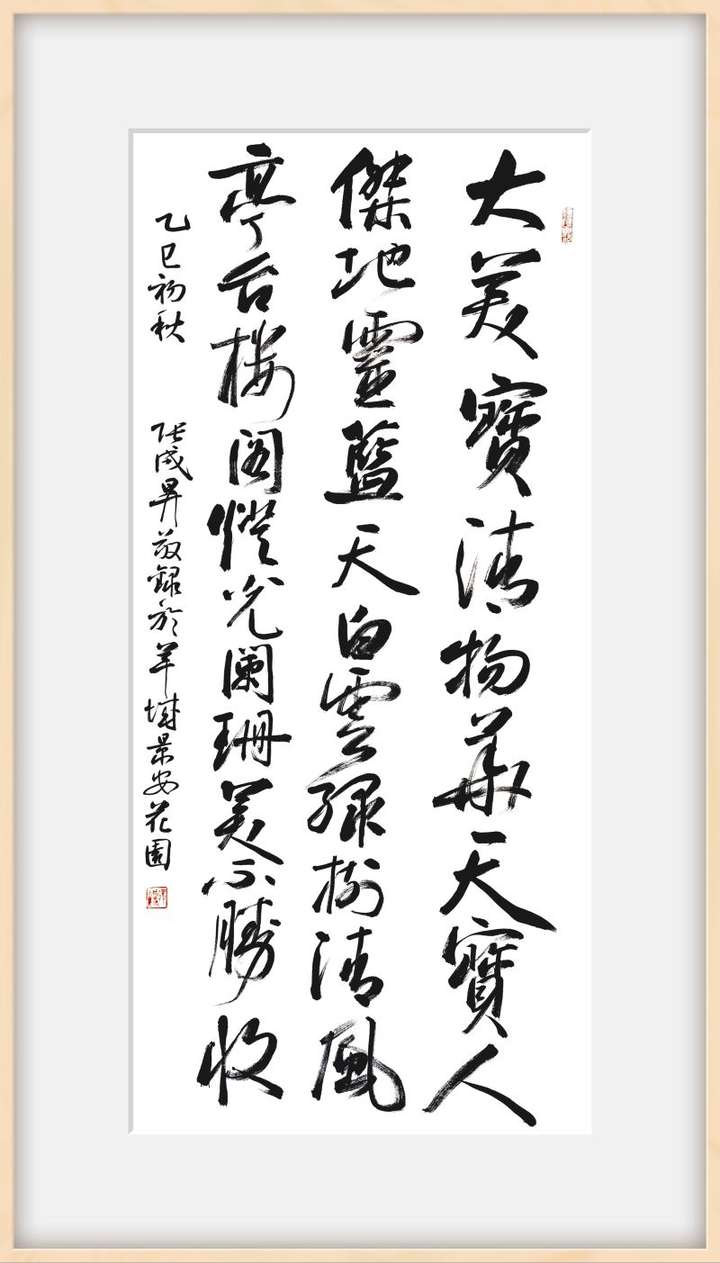 大美寶清物華天寶人
傑地靈藍天白雲綠樹清風
亭台楼阁燈光闌珊美不勝收
乙巳初秋
张成昇敬録於羊城景安花園